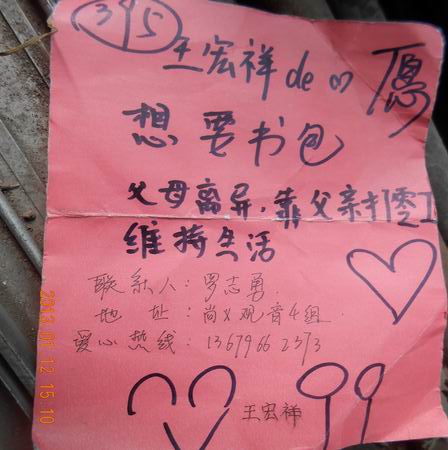 395
王宏祥 de 心愿
想要书包
父母离异,靠父亲打零工
维持生活
联系人:罗志勇
地址:尚义观音4组
爱心热线:13679662373
王宏祥
2013.01.12 15:10